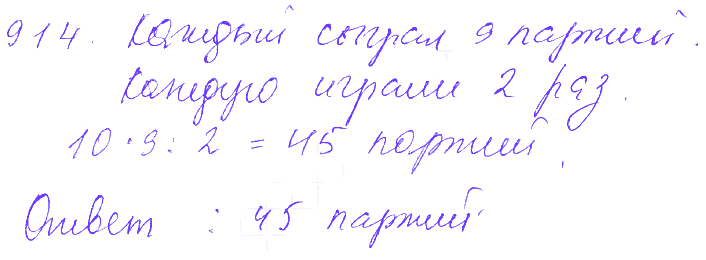 914. Каждый сыграл 9 партий.
Каждую играли 2 раз.
10 · 9 : 2 = 45 портий.
Ответ : 45 партий